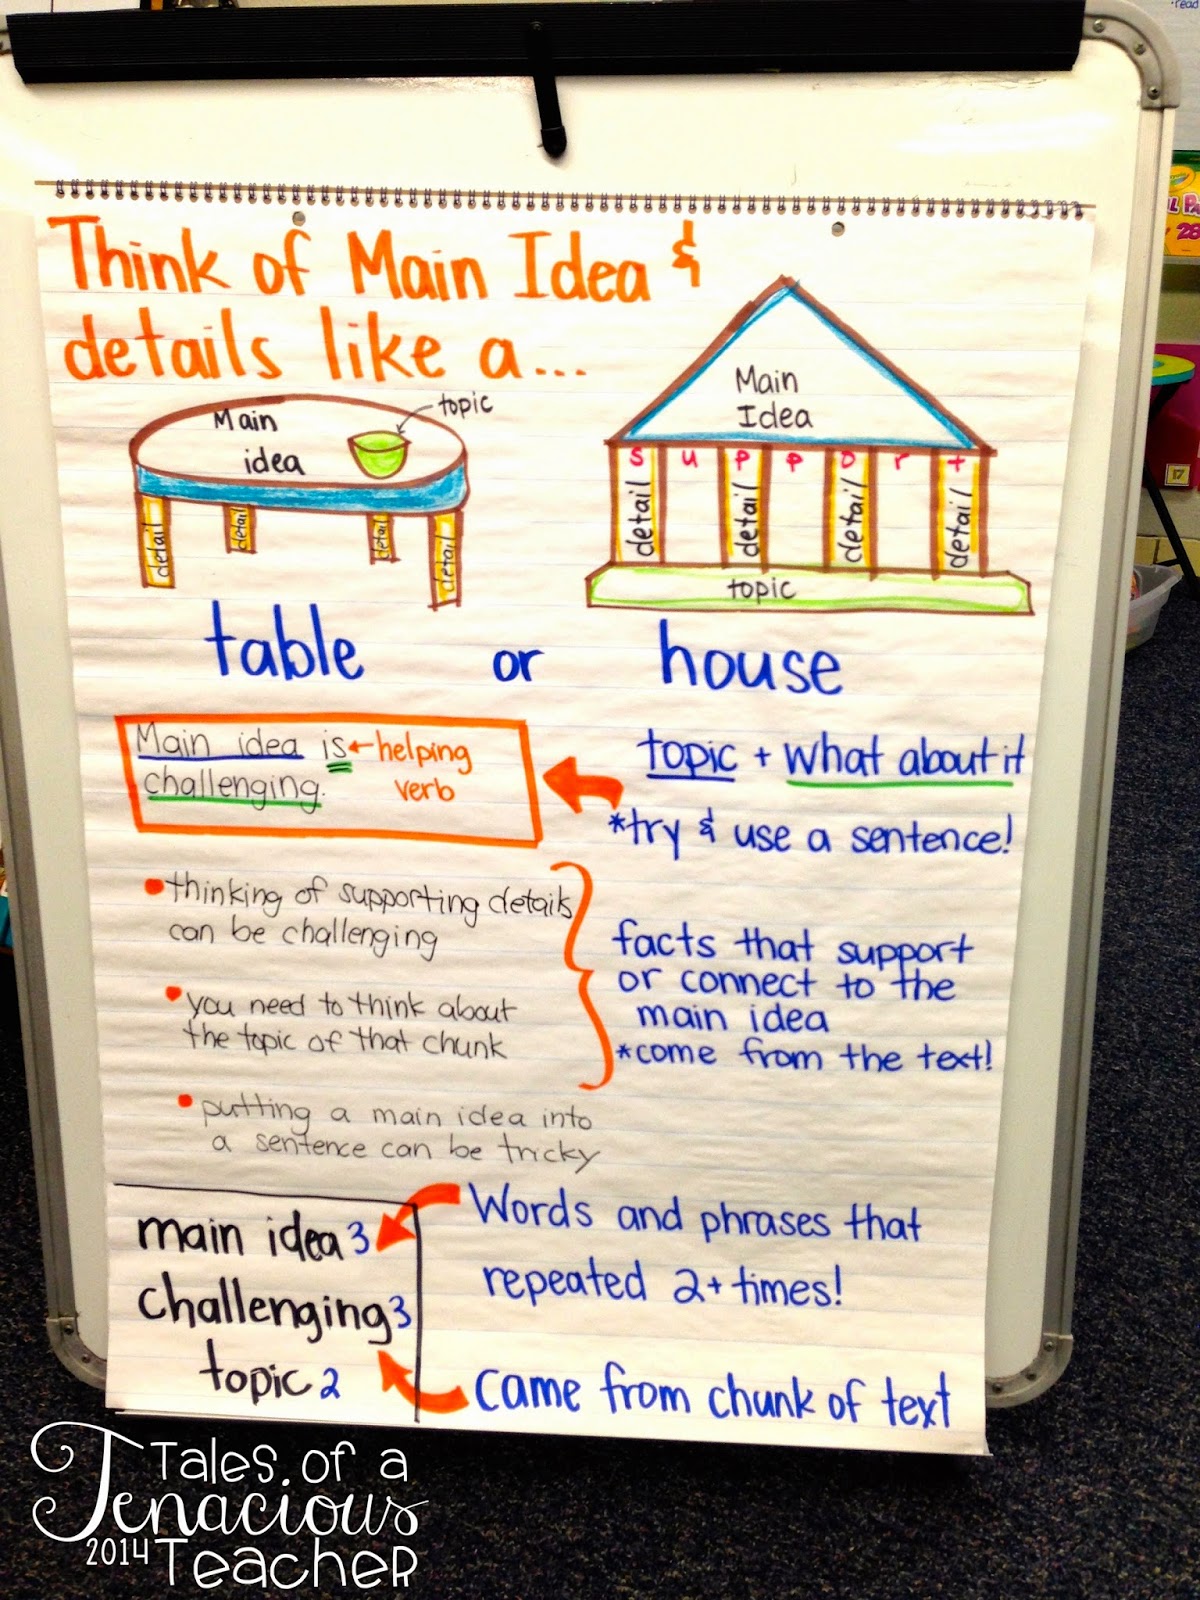 Think of Main Idea &
details like a...
Main
idea
topic
detail
detail
detail
detail
Main
Idea
support
detail
detail
detail
detail
topic
table or house
Main idea is ← helping
challenging. verb
topic + what about it
*try & use a sentence!
• thinking of supporting details
can be challenging
• you need to think about
the topic of that chunk
• putting a main idea into
a sentence can be tricky
facts that support
or connect to the
main idea
*come from the text!
main idea 3
challenging 3
topic 2
Words and phrases that
repeated 2+ times!
Came from chunk of text
Tales of a
Tenacious
2014 Teacher
read
Crayola
28
17